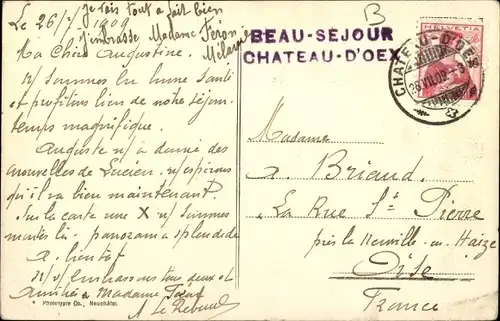 Je vais tout à fait bien
J'embrasse Madame Féron
Mélanie
Le 26/7 1909
Ma Chère Augustine.
n/ sommes en bonne santé
et profitons bien de notre séjour
temps magnifique.
Auguste n/ a donné des
nouvelles de Lucien. n/ espérons
qu'il va bien maintenant.
Sur la carte une X n/ sommes
montés là - panorama splendide
a bientôt
n/ v/ embrassons tous deux et
amitiés à Madame
A Le
Phototypie Co., Neuchâtel.
B
BEAU-SÉJOUR
CHATEAU-D'OEX
HELVETIA
CHATEAU-D'OEX
26.VII.09
Madame
A. Briand
La Rue St Pierre
près la Neuville-en-Haize
Oise
France